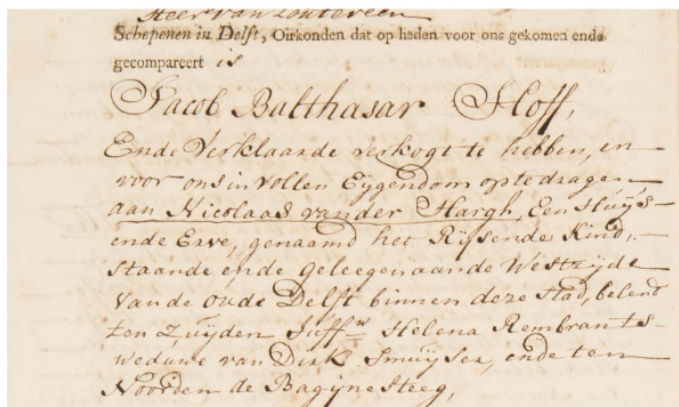 Heer van Soutereen
Schepenen in Delft, Oirkonden dat op haden voor ons gekomen ende
gecompareert is
Jacob Balthasar Hoff,
Ende Verklaarde verkogt te hebben, en
voor ons in vollen Eygendom optedragen
aan Nicolaas vander Hargh, Een Huÿs
ende Erve, genaamd het Rÿsende Kind,
staande ende geleegen aande Westzÿde
Vande oude Delft binnen deze stad, belend
ten Zuÿden Juffw Helena Rembrants
weduwe van Dirk Smuÿser, ende ten
Noorden de Bagÿne steeg,